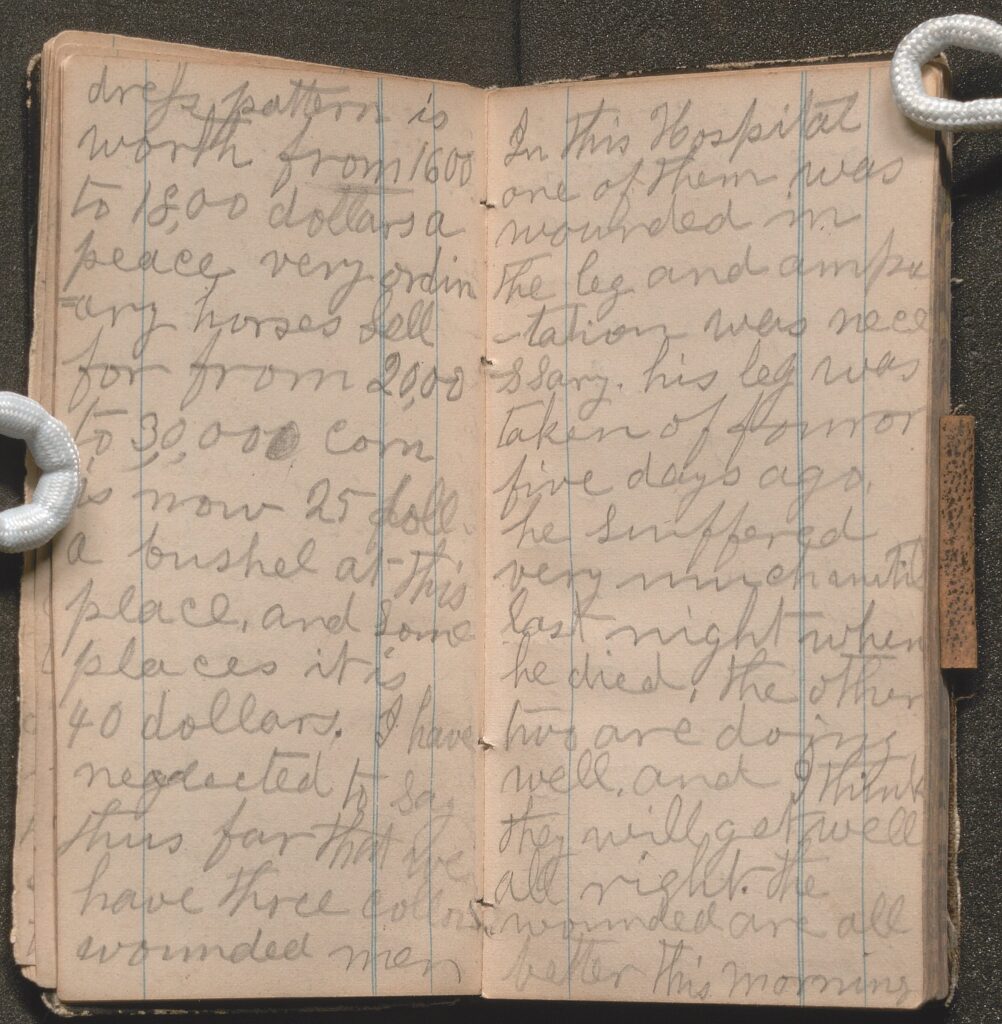 dress pattern is
worth from 1600
to 18,00 dollars a
peace, very ordin
=ary horses sell
for from 20,00
to 30,000 corn
is now 25 doll.
a bushel at this
place, and some
places it is
40 dollars. I have
neglected to say
thus far that we
have three
wounded men
In this Hospital
one of them was
wounded in
the leg and ampu
-tation was nece
ssary. his leg was
taken of four or
five days ago.
he suffered
very much until
last night when
he died, the other
two are doing
well, and I think
they will get well
all right. the
wounded are all
better this morning